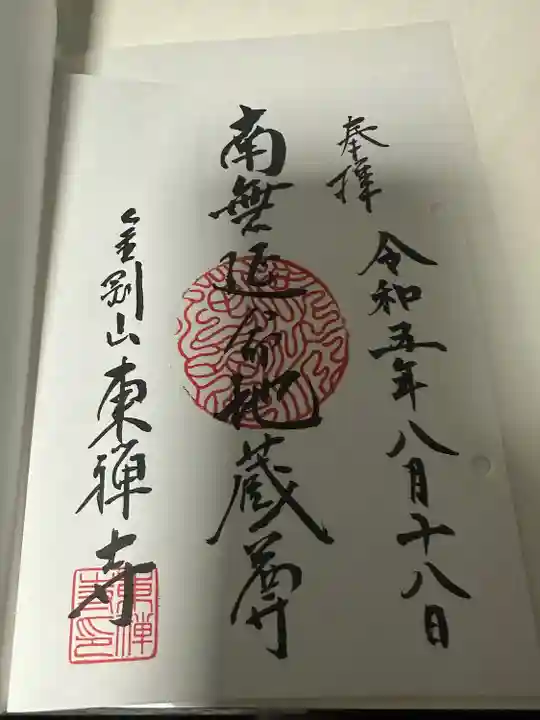 奉拝 令和五年八月十八日
南無延命地蔵尊
金剛山東禅寺